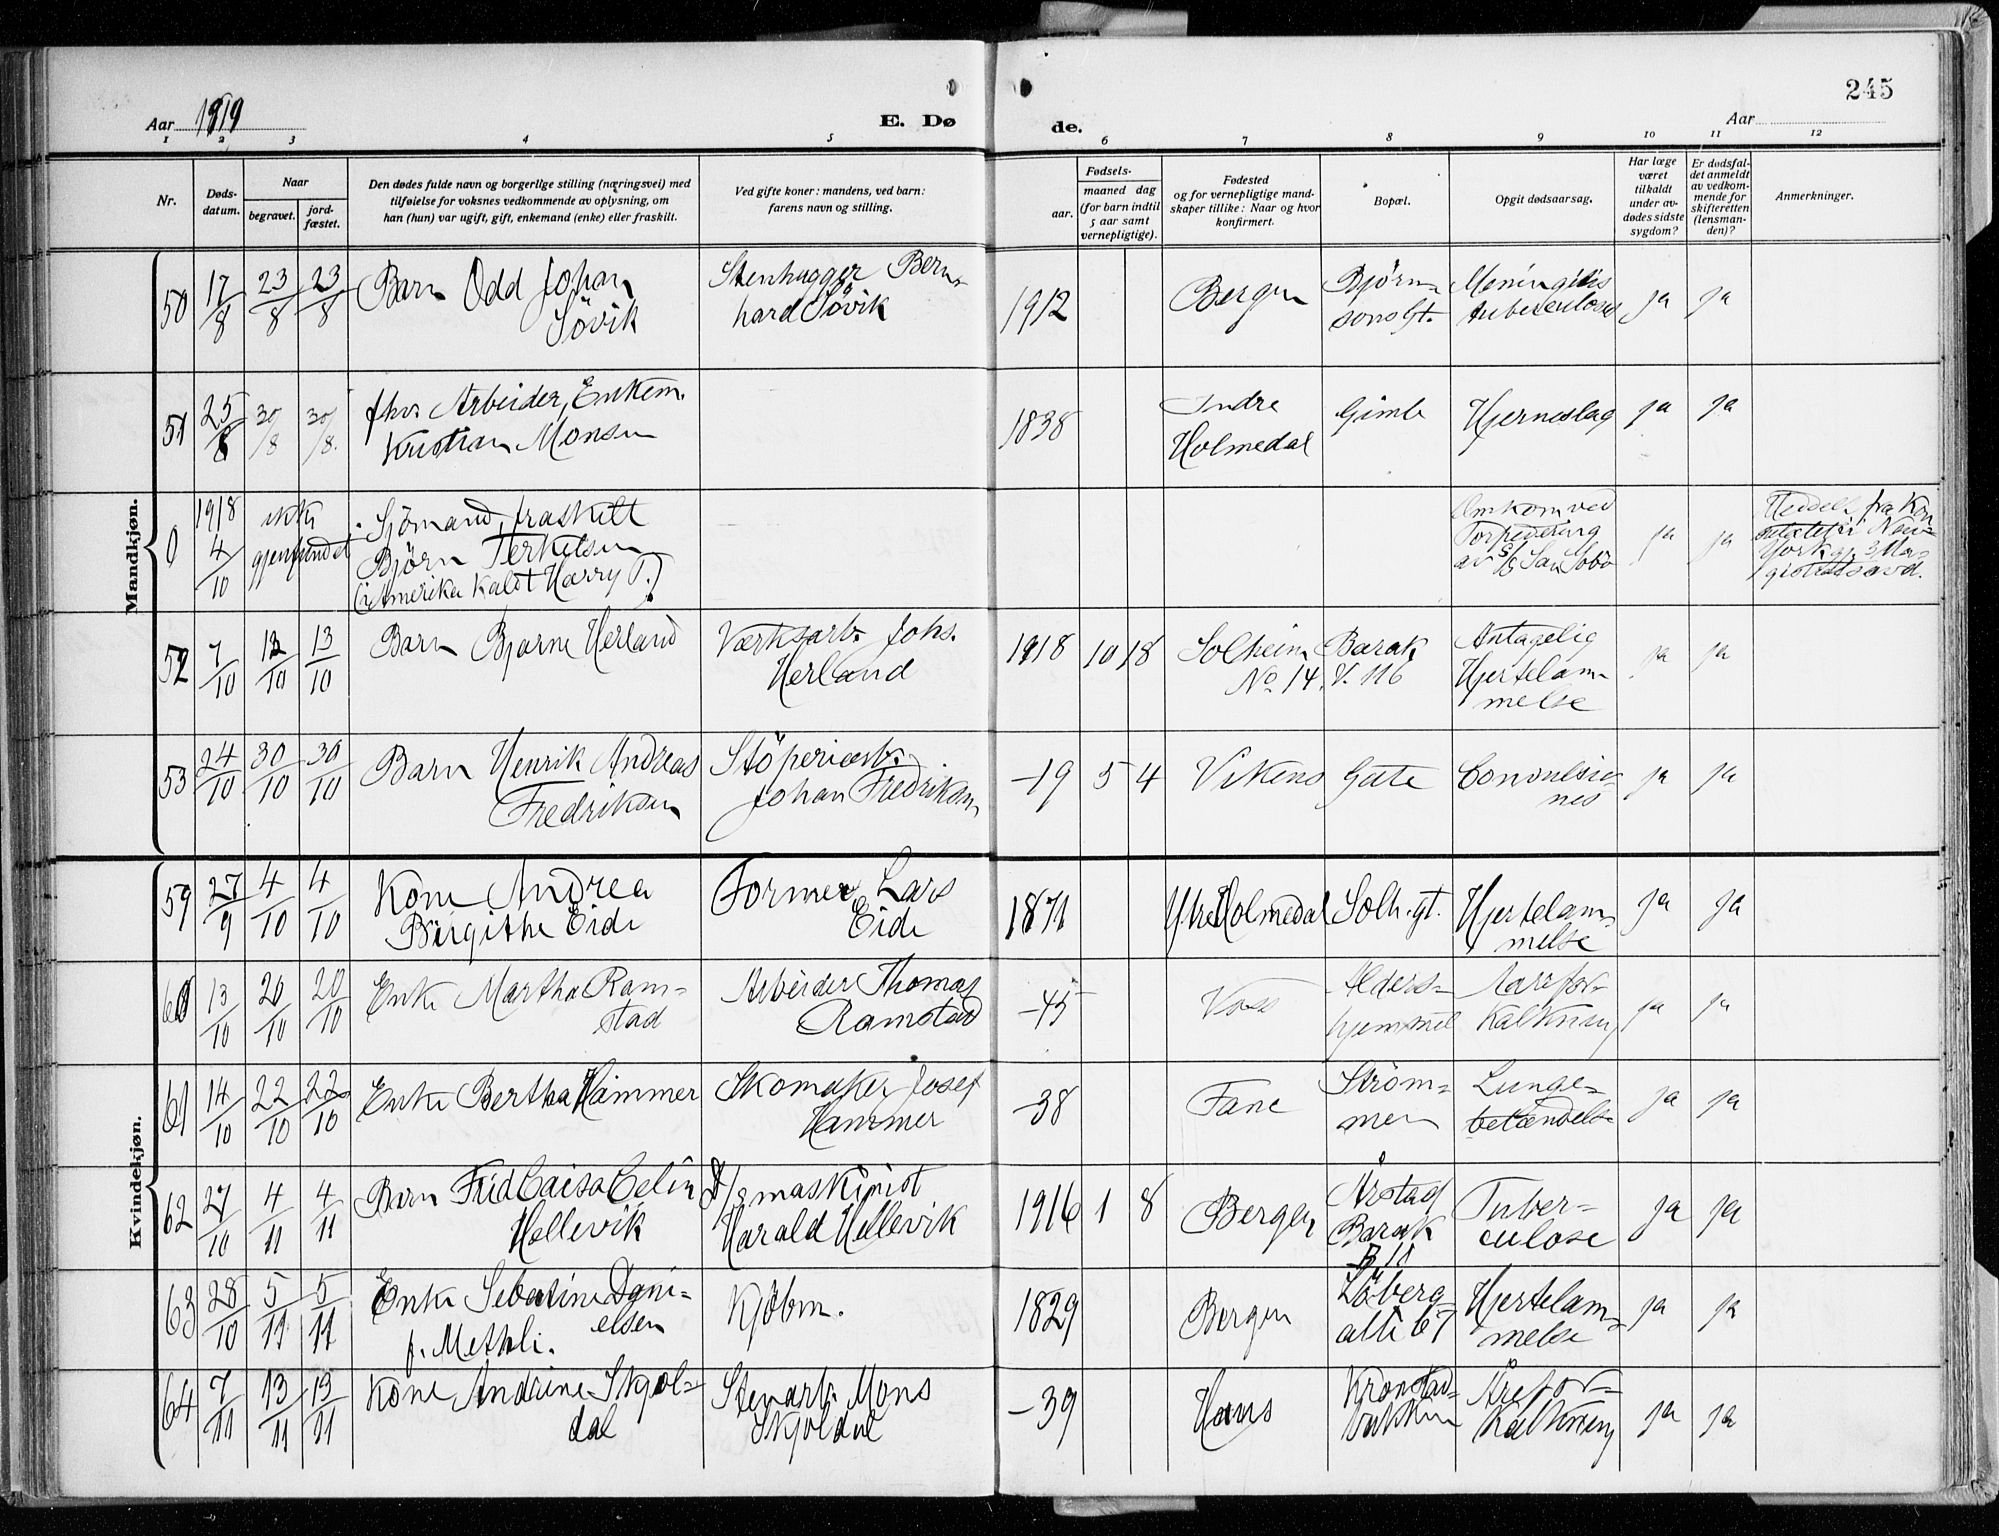 245
Aar 1919
E. Dø
de.
Aar
1 2 3 4 5 6 7 8 9 10 11 12
Nr.
Døds-
datum.
Naar
begravet.
jord-
fæstet.
Den dødes fulde navn og borgerlige stilling (næringsvei) med
tilføielse for voksnes vedkommende av oplysning, om
han (hun) var ugift, gift, enkemand (enke) eller fraskilt.
Ved gifte koner: mandens, ved barn:
farens navn og stilling.
Fødsels-
aar.
maaned dag
(for barn indtil
5 aar samt
vernepligtige).
Fødested
og for vernepligtige mand-
skaper tillike: Naar og hvor
konfirmert.
Bopæl.
Opgit dødsaarsag.
Har læge
været
tilkaldt
under av-
dødes sidste
sygdom?
Er dødsfal-
det anmeldt
av vedkom-
mende for
skifteretten
(lensman-
den)?
Anmerkninger.
Mandkjøn.
50 17/8 23/8 23/8 Barn Odd Johan
Sövik
Stenhugger Bern-
hard Sövik
1912 Bergen
Bjørn-
sonsGt.
Meningitis
tuberculosa
ja ja
51 25/8 30/8 30/8. fhv. Arbeider, Enkem.
Kristian Monsen
1838
Indre
Holmedal
Gimle Hjerneslag ja ja
0 1918
4/10
ikke
gjenfundet
Sjömand, fraskilt
Björn Terkelsen
(i Amerika kaldt Harry T.)
Omkom ved
Torpedering
av S/S San Sobö
ja ja
Meddelt fra Kon
sulatet i New-
York gj. Ma-
gistratsavd.
52 7/10 12/10 13/10 Barn Bjarne Herland
Værksarb. Johs.
Herland
1918 10 18
Solheim Barak
No. 14. V. 116
Antagelig
Hjertelam-
melse
ja ja
53 24/10 30/10 30/10 Barn Henrik Andreas
Fredriksen
Stöperiarb.
Johan Fredriksen
-19 5 4 Vikens Gate
Convulsio-
nes
ja ja
Kvindekjøn.
59 27/9 4/10 4/10 Kone Andrea
Birgithe Eide
Former Lars
Eide
1871 Ytre Holmedal Solh.gt.
Hjertelam-
melse
ja ja
60 13/10 20/10 20/10 Enke Martha Ram-
stad
Arbeider Thomas
Ramstad
-45 Voss
Alders-
hjemmet
Aarefor-
kalkning
ja ja
61 14/10 22/10 22/10 Enke Bertha Hammer
Skomaker Josef
Hammer
-38 Fane
Ström-
men
Lunge-
betændelse
ja ja
62 27/10 4/11 4/11 Barn Frid Caisa Celin
Hellevik
D/S maskinist
Harald Hellevik
1916 1 8 Bergen
Årstad
Barak
B 11
Tuber-
culose
ja ja
63 28/10 5/11 5/11 Enke Sebatine Dani-
elsen
f. Methli.
Kjöbm.
1829 Bergen
Löberg-
alle 67
Hjertelam-
melse
ja ja
64 7/11 13/11 13/11 Kone Andrine Skjol-
dal
Stenarb. Mons
Skjoldal
-39 Haus
Kronstad-
bakken
Årefor-
kalkning
ja ja